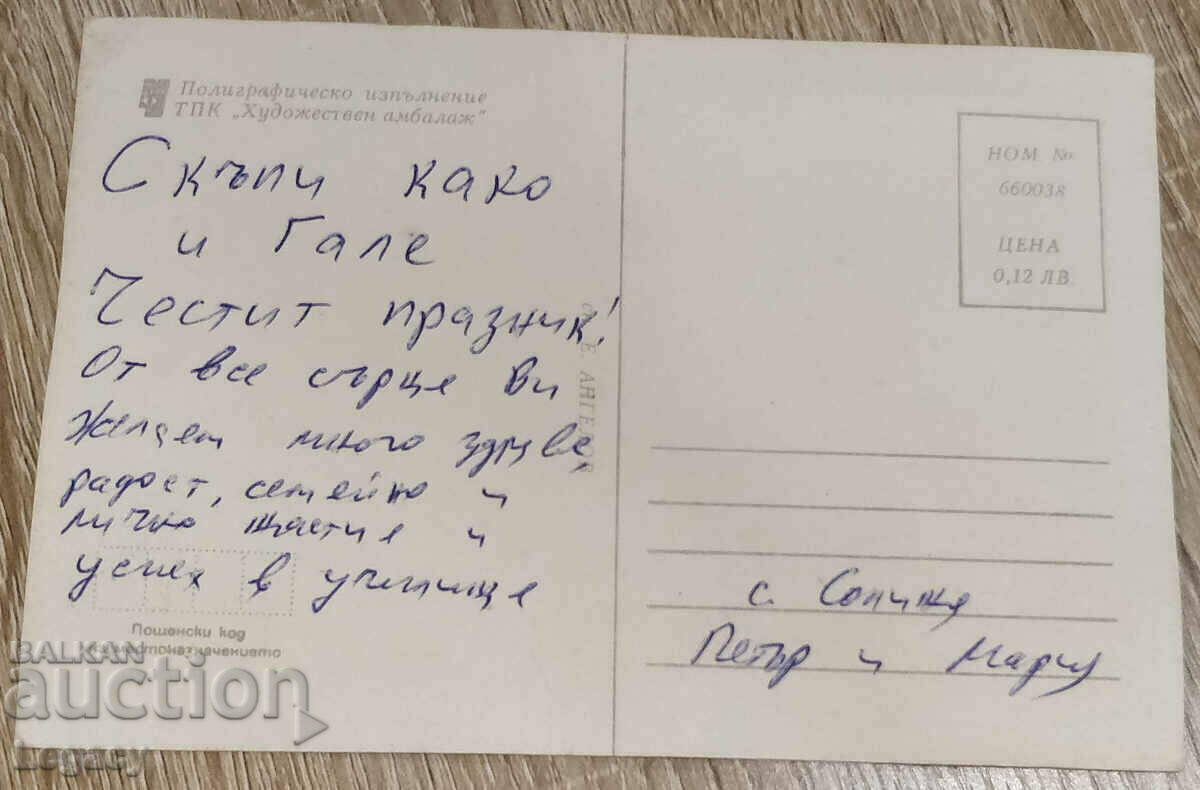 Полиграфическо изпълнение
ТПК „Художествен амбалаж"
Скъпи како
и Гале
Честит празник!
От все сърце Ви
желаем много здраве,
радост, семейно и
лично щастие и
успех в училище
Пощенски код
на местоназначението
Е. АНГЕЛОВ
НОМ. №
660038
ЦЕНА
0,12 ЛВ.
с.
Петър и Мария
BALKAN
auction
Legacy